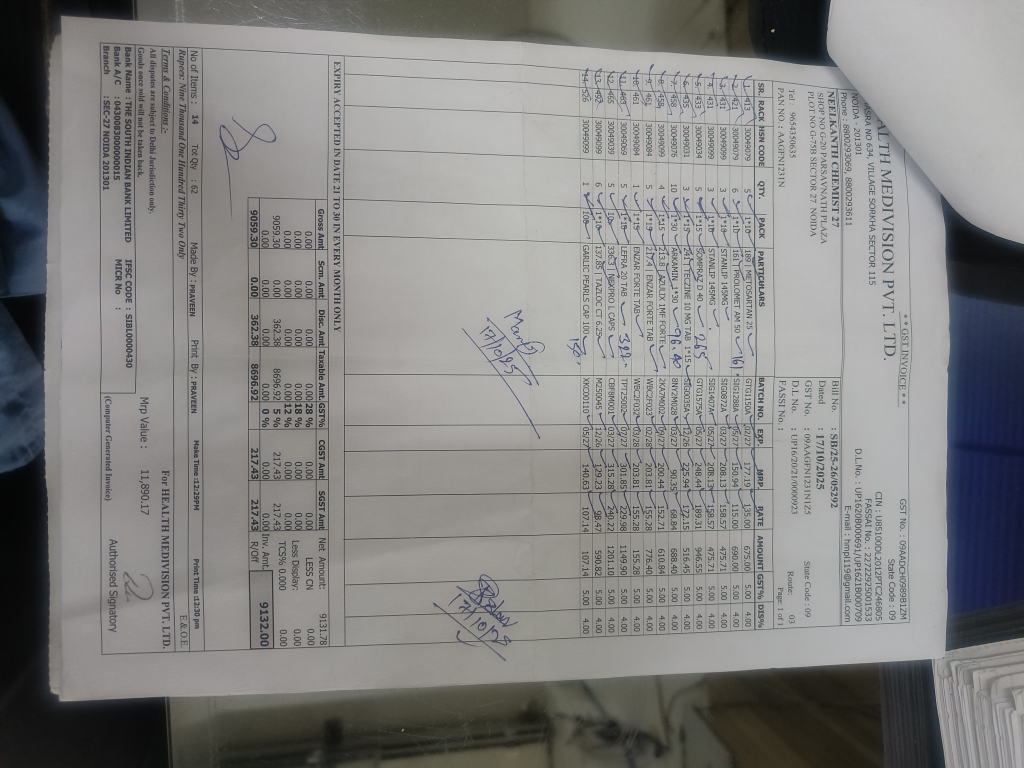 ** GST INVOICE **
GST No. : 09AADCH0989B1ZM
State Code : 09
ALTH MEDIVISION PVT. LTD.
CIN : U85100DL2012PTC246805
ASRA NO 634, VILLAGE SORKHA SECTOR 115
FASSAI No. : 22722925001533
NOIDA - 201301
D.L.No. : UP1620B000691/UP1621B000709
Phone : 8800293069, 8800293611
E-mail : hmpl119@gmail.com
NEELKANTH CHEMIST 27
SHOP NO G-20 PARSAVNATH PLAZA
PLOT NO G-75B SECTOR 27 NOIDA
Tel : 9654350635
PAN NO. : AAGFN1231N
Bill No. : SB/25-26/05292
Dated : 17/10/2025
GST No. : 09AAGFN1231N1Z5 State Code : 09
D.L.No. : UP16/20/21/0000923 Route: 03
FASSI No. : Page: 1 of 1
SR. RACK HSN CODE QTY. PACK PARTICULARS BATCH NO. EXP. MRP RATE AMOUNT GST% DIS%
1. 413 30049079 5 1*10 189 METOSARTAN 25 GTG1150A 02/27 177.19 135.00 675.00 5.00 4.00
2. 421 30049079 6 1*10 161 PROLOMET AM 50 161 SIG1288A 06/27 150.94 115.00 690.00 5.00 4.00
3. 431 30049099 3 1*10 STANLIP 145MG SIG0872A 03/27 208.13 158.57 475.71 5.00 4.00
4. 431 30049099 3 1*10 STANLIP 145MG SIG1407A 05/27 208.13 158.57 475.71 5.00 4.00
5. 433 30049034 5 1*15 SOMPRAZ D 40 265 GTG1575A 06/27 248.44 189.31 946.55 5.00 4.00
6. 435 30049031 3 1*15 TECZINE 10 MG TAB 1*15 SIG0035A 12/26 225.94 172.15 516.45 5.00 4.00
7. 458 30049076 10 1*30 ARKAMIN 1*30 96.40 8NV2M028 06/27 90.35 68.84 688.40 5.00 4.00
8. 458 30049099 4 1*15 213.8 AZULIX 1MF FORTE 2KA7M002 06/27 200.44 152.71 610.84 5.00 4.00
9. 461 30049084 5 1*15 217.4 ENZAR FORTE TAB WBC2F023 02/28 203.81 155.28 776.40 5.00 4.00
10. 461 30049084 1 1*15 ENZAR FORTE TAB WBC2F032 03/28 203.81 155.28 155.28 5.00 4.00
11. 463 30049069 5 1*15 LEFRA 20 TAB 322 TPT25002 02/27 301.85 229.98 1149.90 5.00 4.00
12. 465 30049039 5 10 336.3 NEXPRO CAPS CBFBM001 03/27 315.28 240.22 1201.10 5.00 4.00
13. 492 30049099 6 1*10 137.85 TAZLOC CT 6.25 M250045 12/26 129.23 98.47 590.82 5.00 4.00
14. 526 30049099 1 100 GARLIC PEARLS CAP 100 150 XK00110 05/27 140.63 107.14 107.14 5.00 4.00
17/10/25
17/10/25
EXPIRY ACCEPTED IN DATE 21 TO 30 IN EVERY MONTH ONLY
Gross Amt Scm. Amt Disc. Amt Taxable Amt. GST% CGST Amt SGST Amt Net Amount: 9133.78
0.00 0.00 0.00 0.00 28 % 0.00 0.00 Less CN 0.00
0.00 0.00 0.00 0.00 18 % 0.00 0.00 Less Display: 0.00
0.00 0.00 0.00 0.00 12 % 0.00 0.00 TCS% 0.000 0.00
9059.30 0.00 362.38 8696.92 5 % 217.43 217.43
0.00 0.00 0.00 0.00 0 % 0.00 0.00 Inv. Amt.
9059.30 0.00 362.38 8696.92 217.43 217.43 R/Off 9132.00
No of Items : 14 Tot Qty : 62 Made By : PRAVEEN Print By : PRAVEEN Make Time :12/29PM Print Time :12:30 pm
Rupees: Nine Thousand One Hundred Thirty Two Only E.& O.E.
Terms & Conditions :-
All disputes are subject to Delhi Jurisdiction only.
Goods once sold will not be taken back.
For HEALTH MEDIVISION PVT. LTD.
Mrp Value : 11,890.17
Bank Name : THE SOUTH INDIAN BANK LIMITED IFSC CODE : SIBL0000430
Bank A/C : 0430083000000015 MICR No :
Branch : SEC-27 NOIDA 201301
(Computer Generated Invoice) Authorised Signatory